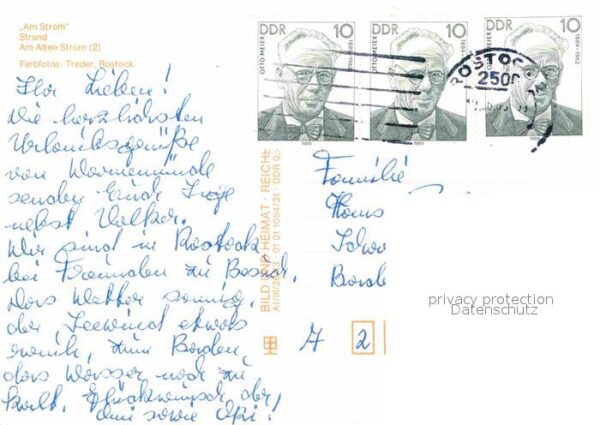 „Am Strom"
Strand
Am Alten Strom (2)
Farbfotos: Treder, Rostock
Ihr Lieben!
Die herzlichsten
Urlaubsgrüße
von Warnemünde
senden Euch Inge
nebst Volker.
Wir sind in Rostock
bei Freunden zu Besuch.
Das Wetter sonnig,
der Seewind etwas
rauh, zum Baden
das Wasser noch zu
kalt. Glückwünsche der
Omi sowie Opi!
BILD UND HEIMAT · REICHE
A1/III/26/13 01 01 1054/31 · DDR 0,
DDR 10
OTTO MEIER 1889-1962
1989
DDR 10
OTTO MEIER 1889-1962
1989
DDR 10
1889-1962
1989
ROSTOC
2500
Familie
Hans
A 2
privacy protection
Datenschutz